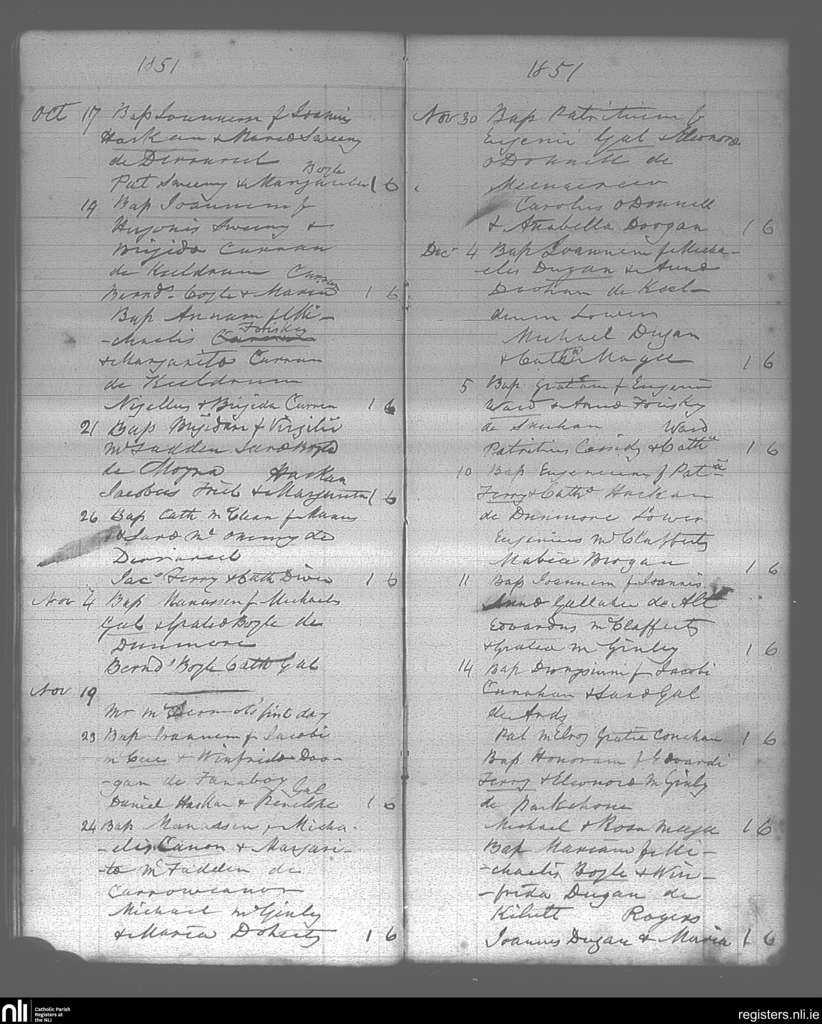 1851
Oct 17 Bap Joannem f Joannis
Harkan & Maria Sweeny
de Derryreel
Boyle
Pat Sweeny & Margarita 1 6
19 Bap Joannem f
Hugonis Sweeny &
Brigida Curran
de Keeldrum Curran
Bernd. Coyle & Maria 1 6
Bap Annam f Mi-
-chaelis Foriskey
& Margarita Curran
de Keeldrum
Nigellus & Brigida Curren 1 6
21 Bap Brigidam f Virgilii
McFadden Sara Boyle
de Harkan
Jacobus Friel & Margarita 1 6
26 Bap Cath McClean f Manus
& Sara Mc de
Derryreel
Jac Ferry & Cath Diver 1 6
Nov 4 Bap Manassem f Michaelis
Gal & Gratia Boyle de
Dunmore
Bernd Boyle Cath Gal
Nov 19
Mr McDermots first day
23 Bap Joannem f Jacobi
McCue & Winfrida Doo-
-gan de Fanaboy Gal
Daniel Harkan & Penelope 1 6
24 Bap Manassem f Micha-
-elis Canon & Margari-
-ta McFadden de
Carrowcanon
Michael McGinley
& Maria Doherty 1 6
1851
Nov 30 Bap Patritium f
Eugenii Gal & Eleonora
O Donnell de
Carolus O Donnell
& Anabella Doogan 1 6
Dec 4 Bap Joannem f Micha-
elis Dugan & Anna
Doohan de Keel-
drum Lower
Michael Dugan
& Cath Magee 1 6
5 Bap Gratiam f Eugenii
Ward & Anna Foriskey
de Ward
Patritius Cassidy & Cath 1 6
10 Bap Eugenium f Pat
Ferry & Cath Harkan
de Dunmore Lower
Eugenius McClafferty
Brogan 1 6
11 Bap Joannem f Joannis
Anna Gallaher de Alt
Edvardus McClafferty
& Gratia McGinley 1 6
14 Bap Dionysium f Jacobi
Cunahan & Sara Gal
de Ards
Pat McElroy Gratia Conehan 1 6
Bap Honoram f Edvardi
Ferry & Eleonora McGinley
de
Michael & Rosa Magee 1 6
Bap Mariam f Mi-
-chaelis Boyle & Win-
-frida Dugan de
Rogers
Joannes Dugan & Maria 1 6
nli Catholic Parish
Registers at
the NLI
registers.nli.ie